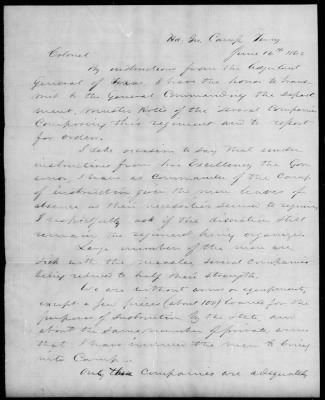 Hd. Qrs. Camp Terry
June 16th 1862
Colonel
By instructions from the Adjutant
General of Texas I have the honor to trans
mit to the General Commanding the depart
ment, Muster Rolls of the several Companies
Composing this regiment and to report
for orders.
I take occasion to say that under
instructions from his Excellency the Gov
ernor, I have as Commander of the Camp
of instruction given the men leaves of
absence as their necessities seemed to require
I respectfully ask if this discretion still
remain the regiment being organized
Large number of the men are
sick with the measles, several Companies
being reduced to half their strength.
We are without arms or equipments,
except a few pieces (about 100) loaned for the
purposes of instruction by the State, and
about the same number of private arms
that I have induced the men to bring
into Camp.
Only three Companies are adequately